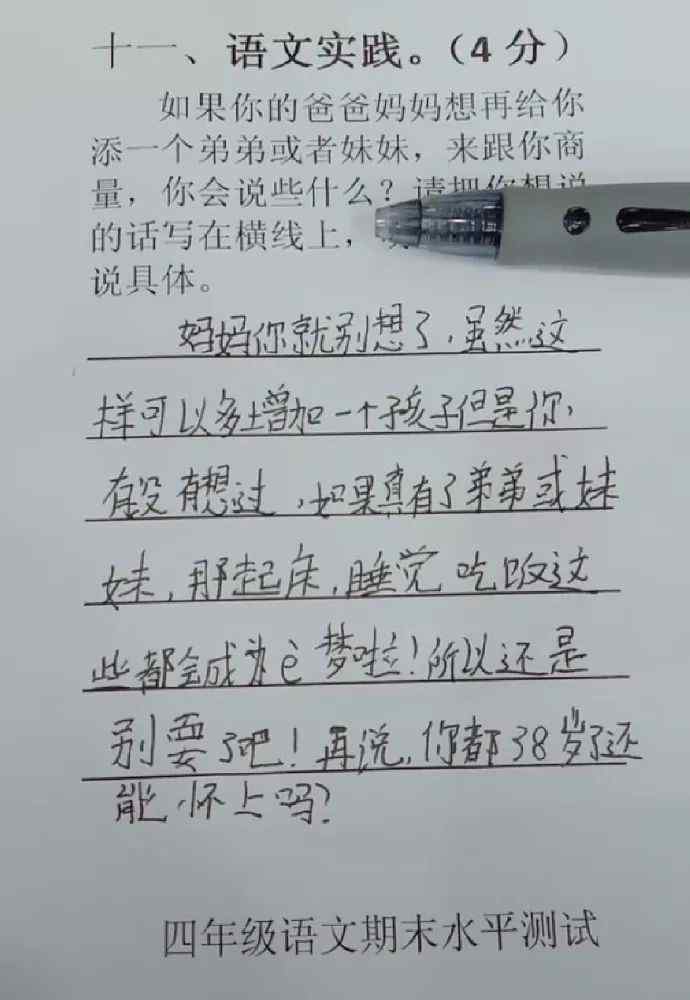 十一、语文实践。（4 分）
如果你的爸爸妈妈想再给你
添一个弟弟或者妹妹，来跟你商
量，你会说些什么？请把你想说
的话写在横线上，
说具体。
妈妈你就别想了，虽然这
样可以多增加一个孩子但是你，
有没有想过，如果真有了弟弟或妹
妹，那起床，睡觉吃饭这
些都会成为è梦啦！所以还是
别要了吧！再说，你都38岁了还
能怀上吗？
四年级语文期末水平测试